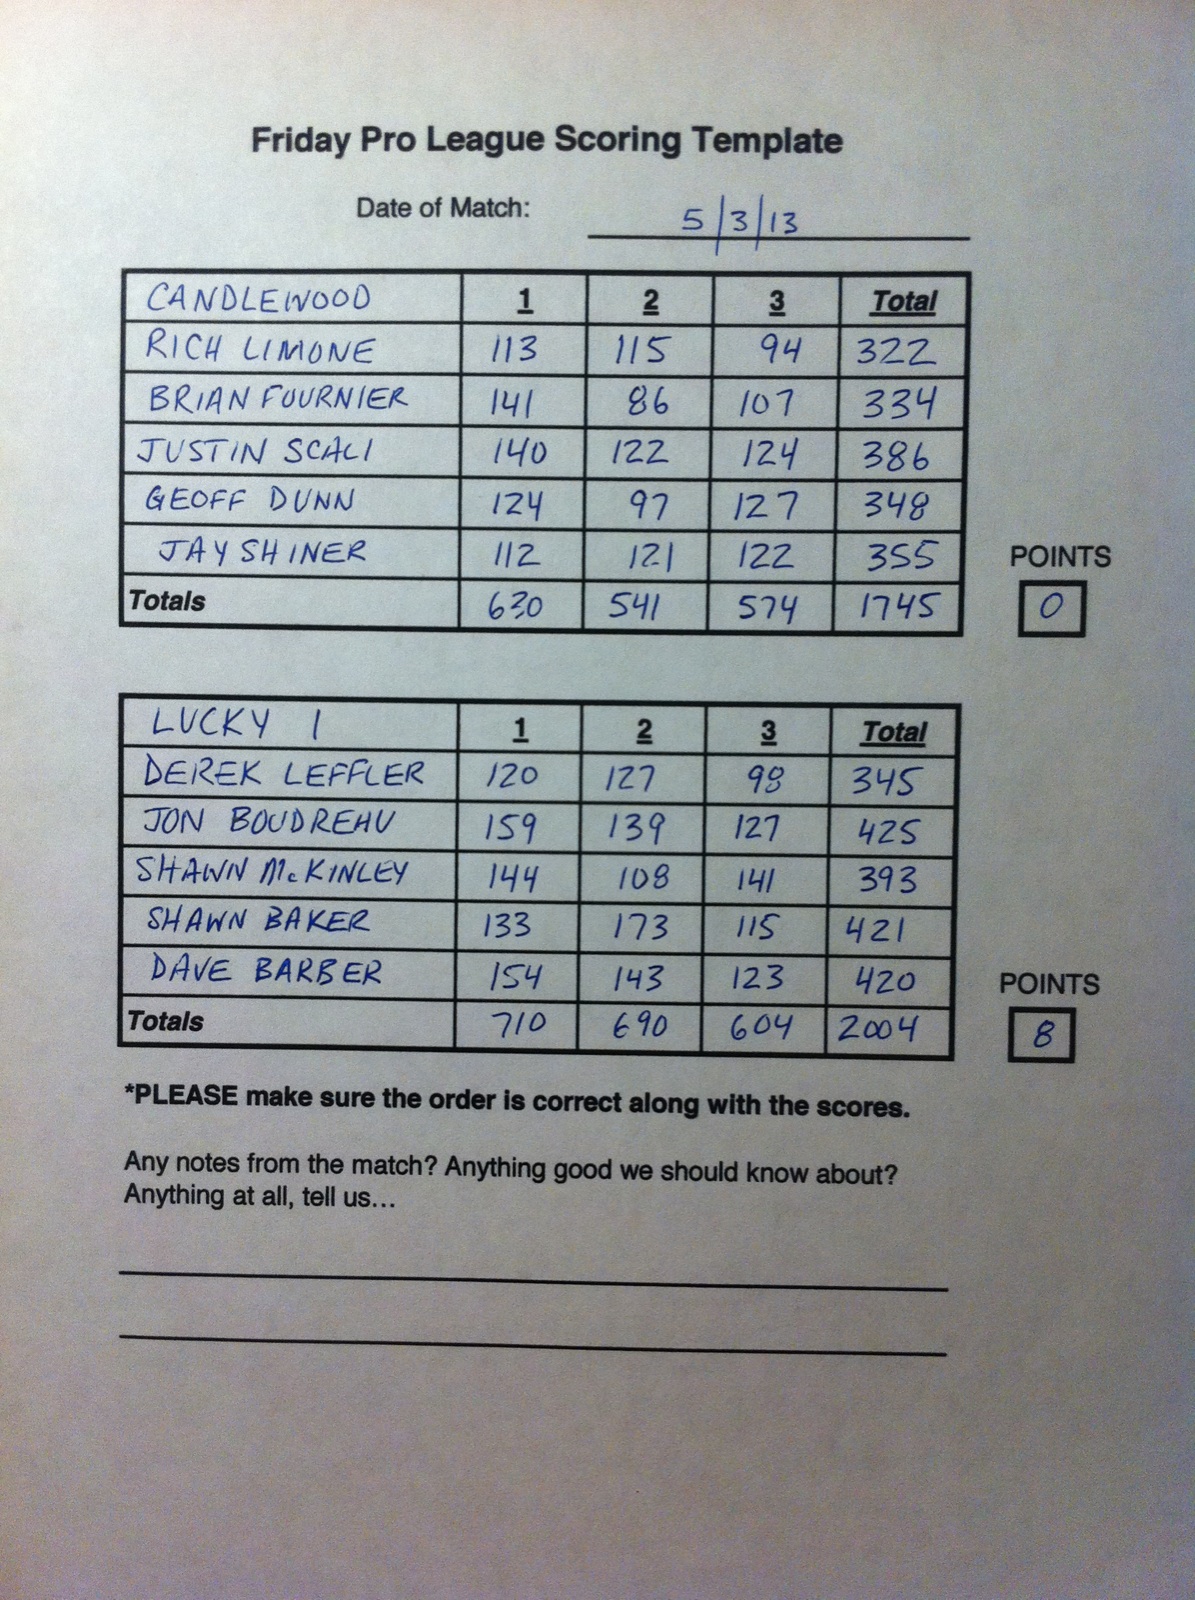 Friday Pro League Scoring Template
Date of Match: 5/3/13
CANDLEWOOD 1 2 3 Total
RICH LIMONE 113 115 94 322
BRIAN FOURNIER 141 86 107 334
JUSTIN SCALI 140 122 124 386
GEOFF DUNN 124 97 127 348
JAY SHINER 112 121 122 355
POINTS
Totals 630 541 574 1745 0
LUCKY 1 1 2 3 Total
DEREK LEFFLER 120 127 98 345
JON BOUDREAU 159 139 127 425
SHAWN McKINLEY 144 108 141 393
SHAWN BAKER 133 173 115 421
DAVE BARBER 154 143 123 420
POINTS
Totals 710 690 604 2004 8
*PLEASE make sure the order is correct along with the scores.
Any notes from the match? Anything good we should know about?
Anything at all, tell us...